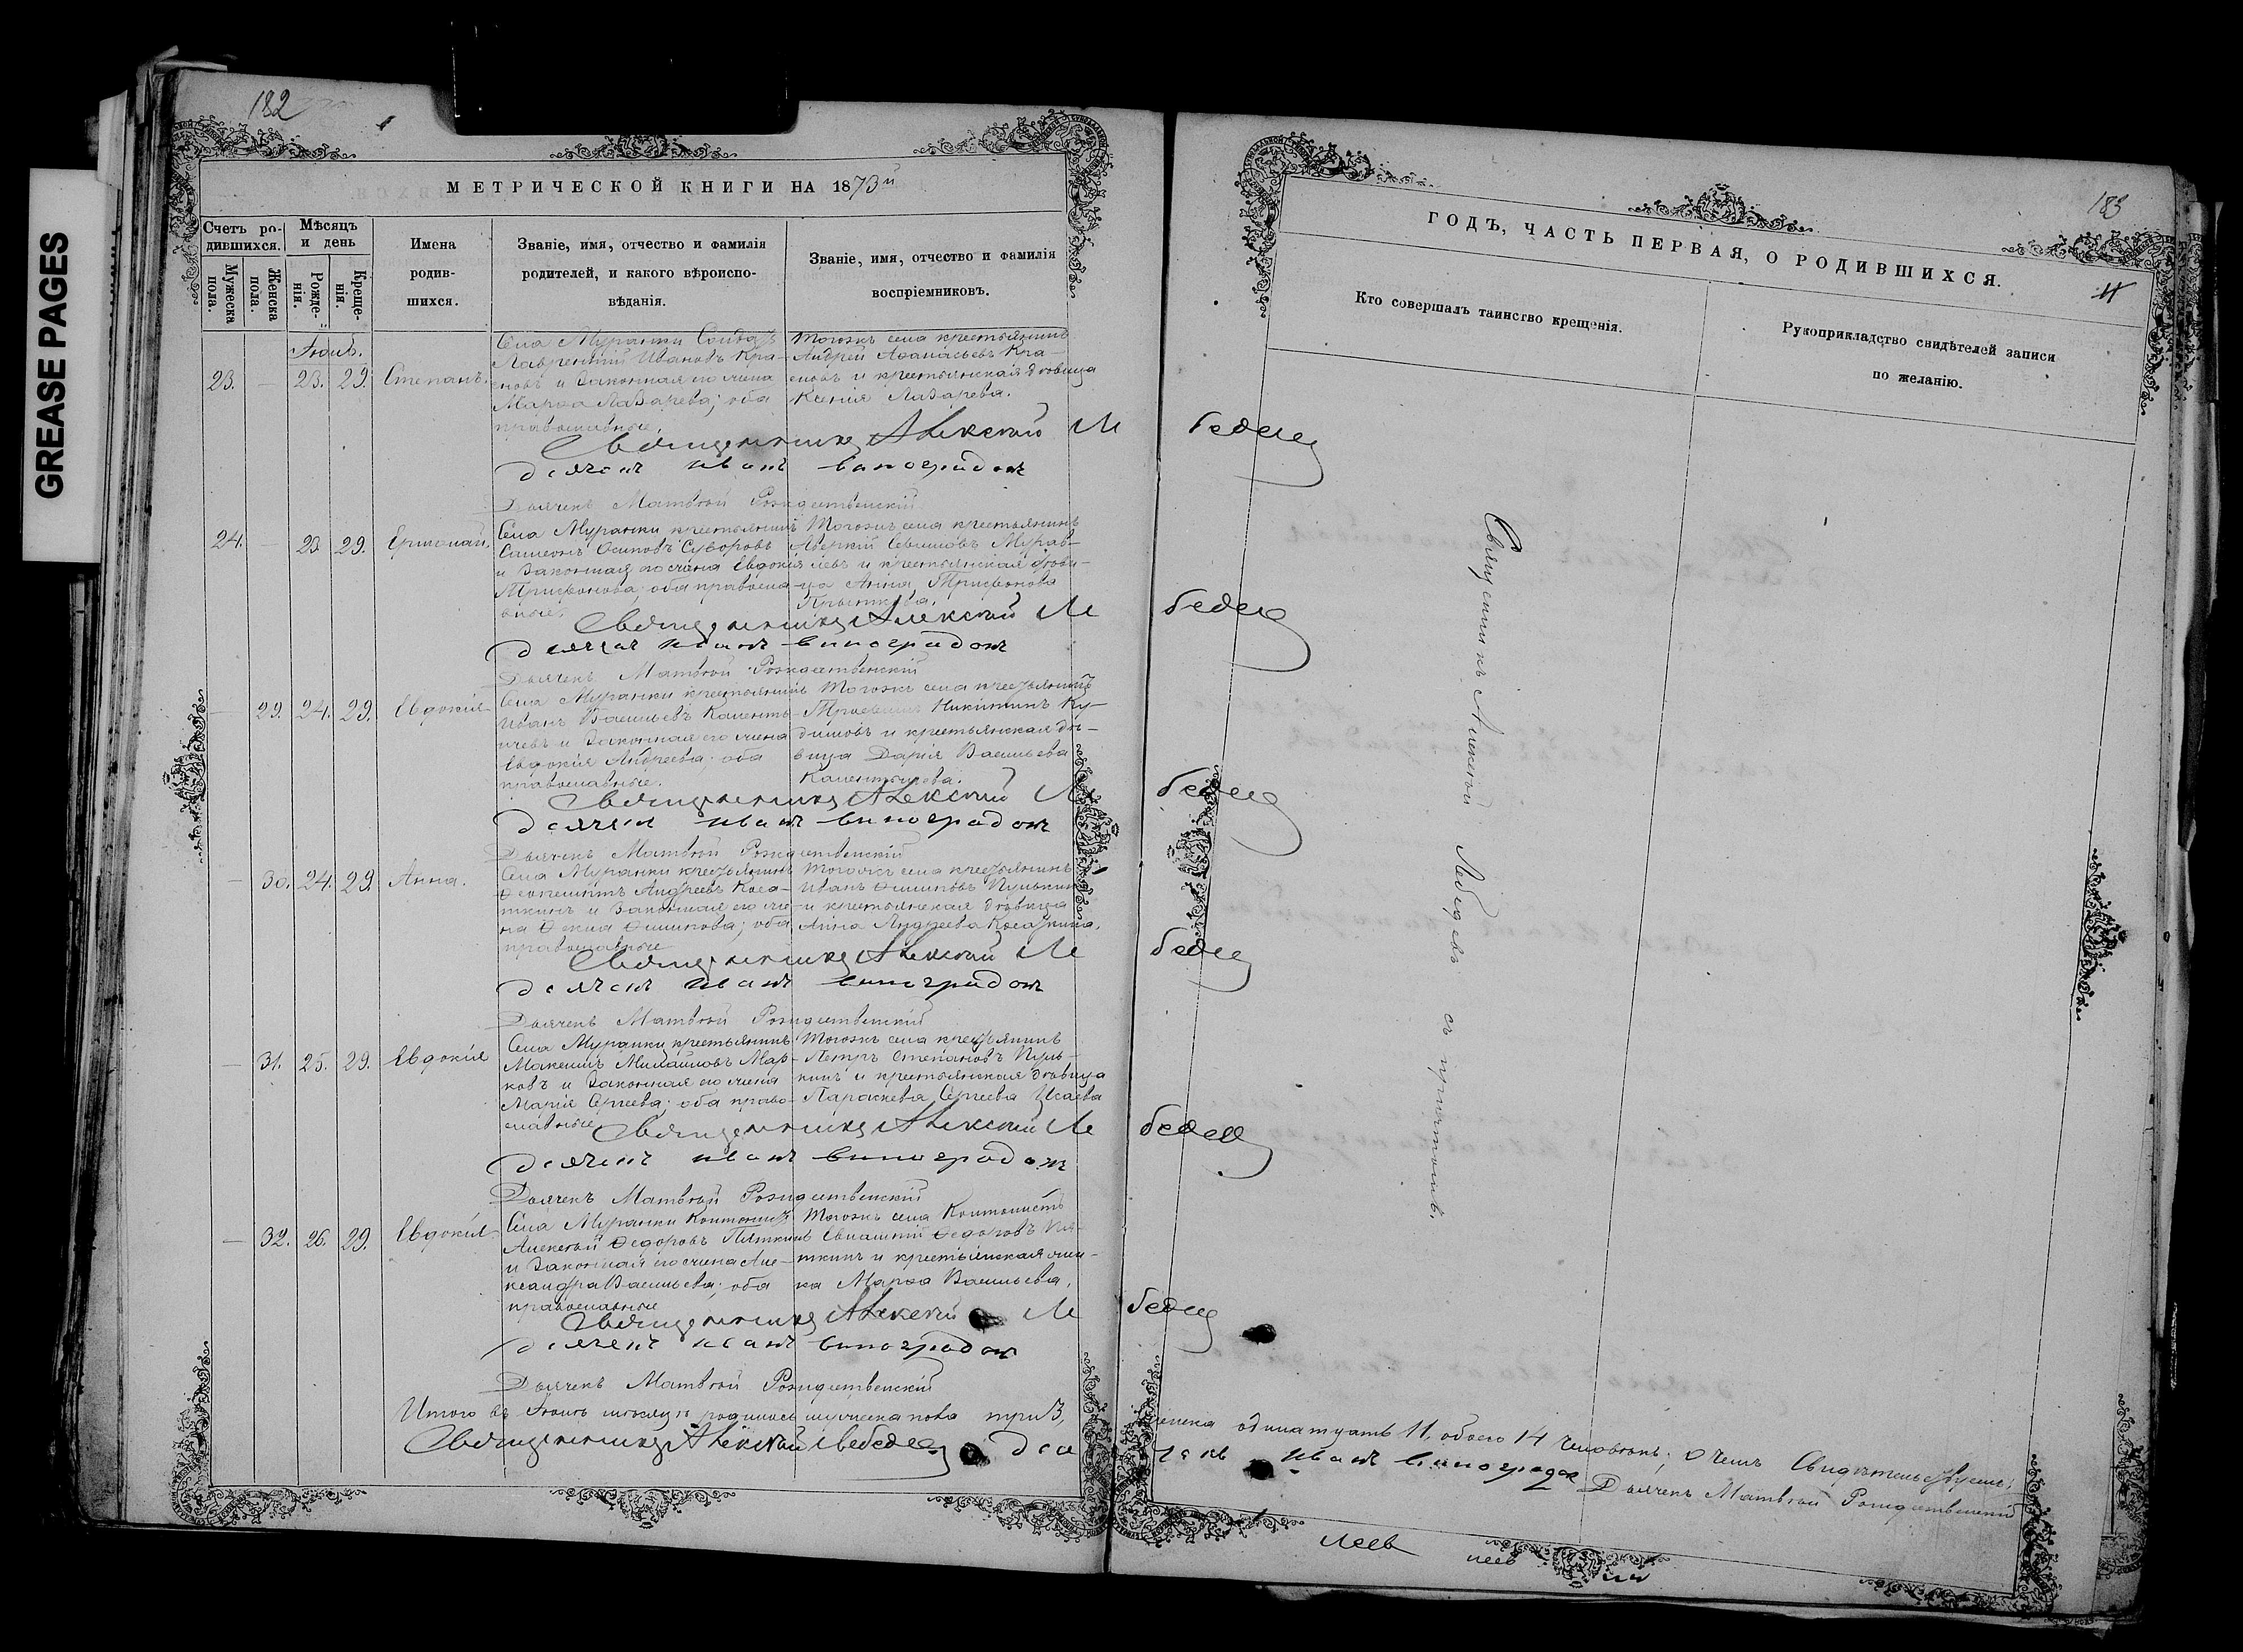 GREASE PAGES
182
МЕТРИЧЕСКОЙ КНИГИ НА 1873й
Счетъ ро-
дившихся.
Мѣсяцъ
и день
Мужеска
пола.
Женска
пола.
Рожде-
нія.
Креще-
нія.
Имена
родив-
шихся.
Званіе, имя, отчество и фамилія
родителей, и какого вѣроиспо-
вѣданія.
Званіе, имя, отчество и фамилія
воспріемниковъ.
23. — 23. 29. Степанъ.
Села Муранки Солдатъ
Лаврентій Ивановъ Кра-
сновъ и Законная его жена
Марѳа Лазарева; оба
православные.
Тогожъ села крестьянинъ
Андрей Аѳанасьевъ Кра-
сновъ и крестьянская дѣвица
Ксенія Лазарева.
Священникъ Алексѣй Лебедев
дьячекъ иванъ виноградовъ
Дьячекъ Матвѣй Рождественскій
24. — 23. 29.
Села Муранки крестьянинъ
Симеонъ Осиповъ Суворовъ
и Законная его жена Евдокія
Трифонова; оба правосла-
вные.
Тогожъ села крестьянинъ
Аверкій Мурав-
левъ и крестьянская дѣви-
ца Анна Трифонова
Священникъ Алексѣй Лебедев
дьячекъ иванъ виноградовъ
Дьячекъ Матвѣй Рождественскій
— 29. 24. 29. Евдокія
Села Муранки крестьянинъ
Иванъ Васильевъ
и Законная его жена
Евдокія Андреева; оба
православные.
Тогожъ села крестьянинъ
Никитинъ Ку-
димовъ и крестьянская дѣ-
вица Дарія Васильева
Священникъ Алексѣй Лебедев
дьячекъ иванъ виноградовъ
Дьячекъ Матвѣй Рождественскій
— 30. 24. 29. Анна.
Села Муранки крестьянинъ
Ѳеоктистъ Андреевъ
и Законная его же-
на Ѳекла Филипова; оба
православные
Тогожъ села крестьянинъ
Иванъ Филиповъ
и крестьянская дѣвица
Анна Андреева
Священникъ Алексѣй Лебедев
дьячекъ иванъ виноградовъ
Дьячекъ Матвѣй Рождественскій
— 31. 25. 29. Евдокія
Села Муранки крестьянинъ
Максимъ Михайловъ Мар-
ковъ и Законная его жена
Марія Сергеева; оба право-
славные
Тогожъ села крестьянинъ
Петръ Степановъ Пуль-
кинъ и крестьянская дѣвица
Параскева Сергеева Исаева
Священникъ Алексѣй Лебедев
дьячекъ иванъ виноградовъ
Дьячекъ Матвѣй Рождественскій
— 32. 26. 29. Евдокія
Села Муранки
Алексѣй Ѳедоровъ Пяткинъ
и Законная его жена Але-
ксандра Васильева; оба
православные
Тогожъ села
Ѳедоровъ Пя-
ткинъ и крестьянская жен-
ка Марѳа Васильева.
Священникъ Алексѣй Лебедев
дьячекъ иванъ виноградовъ
Дьячекъ Матвѣй Рождественскій
Итого въ мѣсяцѣ родилось мужеска пола три 3, женска одинатцать 11, обоего 14 человѣкъ; о чемъ Свидѣтельствуемъ:
Священникъ Алексѣй Лебедев дьячекъ иванъ виноградов Дьячекъ Матвѣй Рождественскій
183
ГОДЪ, ЧАСТЬ ПЕРВАЯ, О РОДИВШИХСЯ.
Кто совершалъ таинство крещенія.
Рукоприкладство свидѣтелей записи
по желанію.
Священникъ Алексѣй Лебедевъ съ причтомъ.